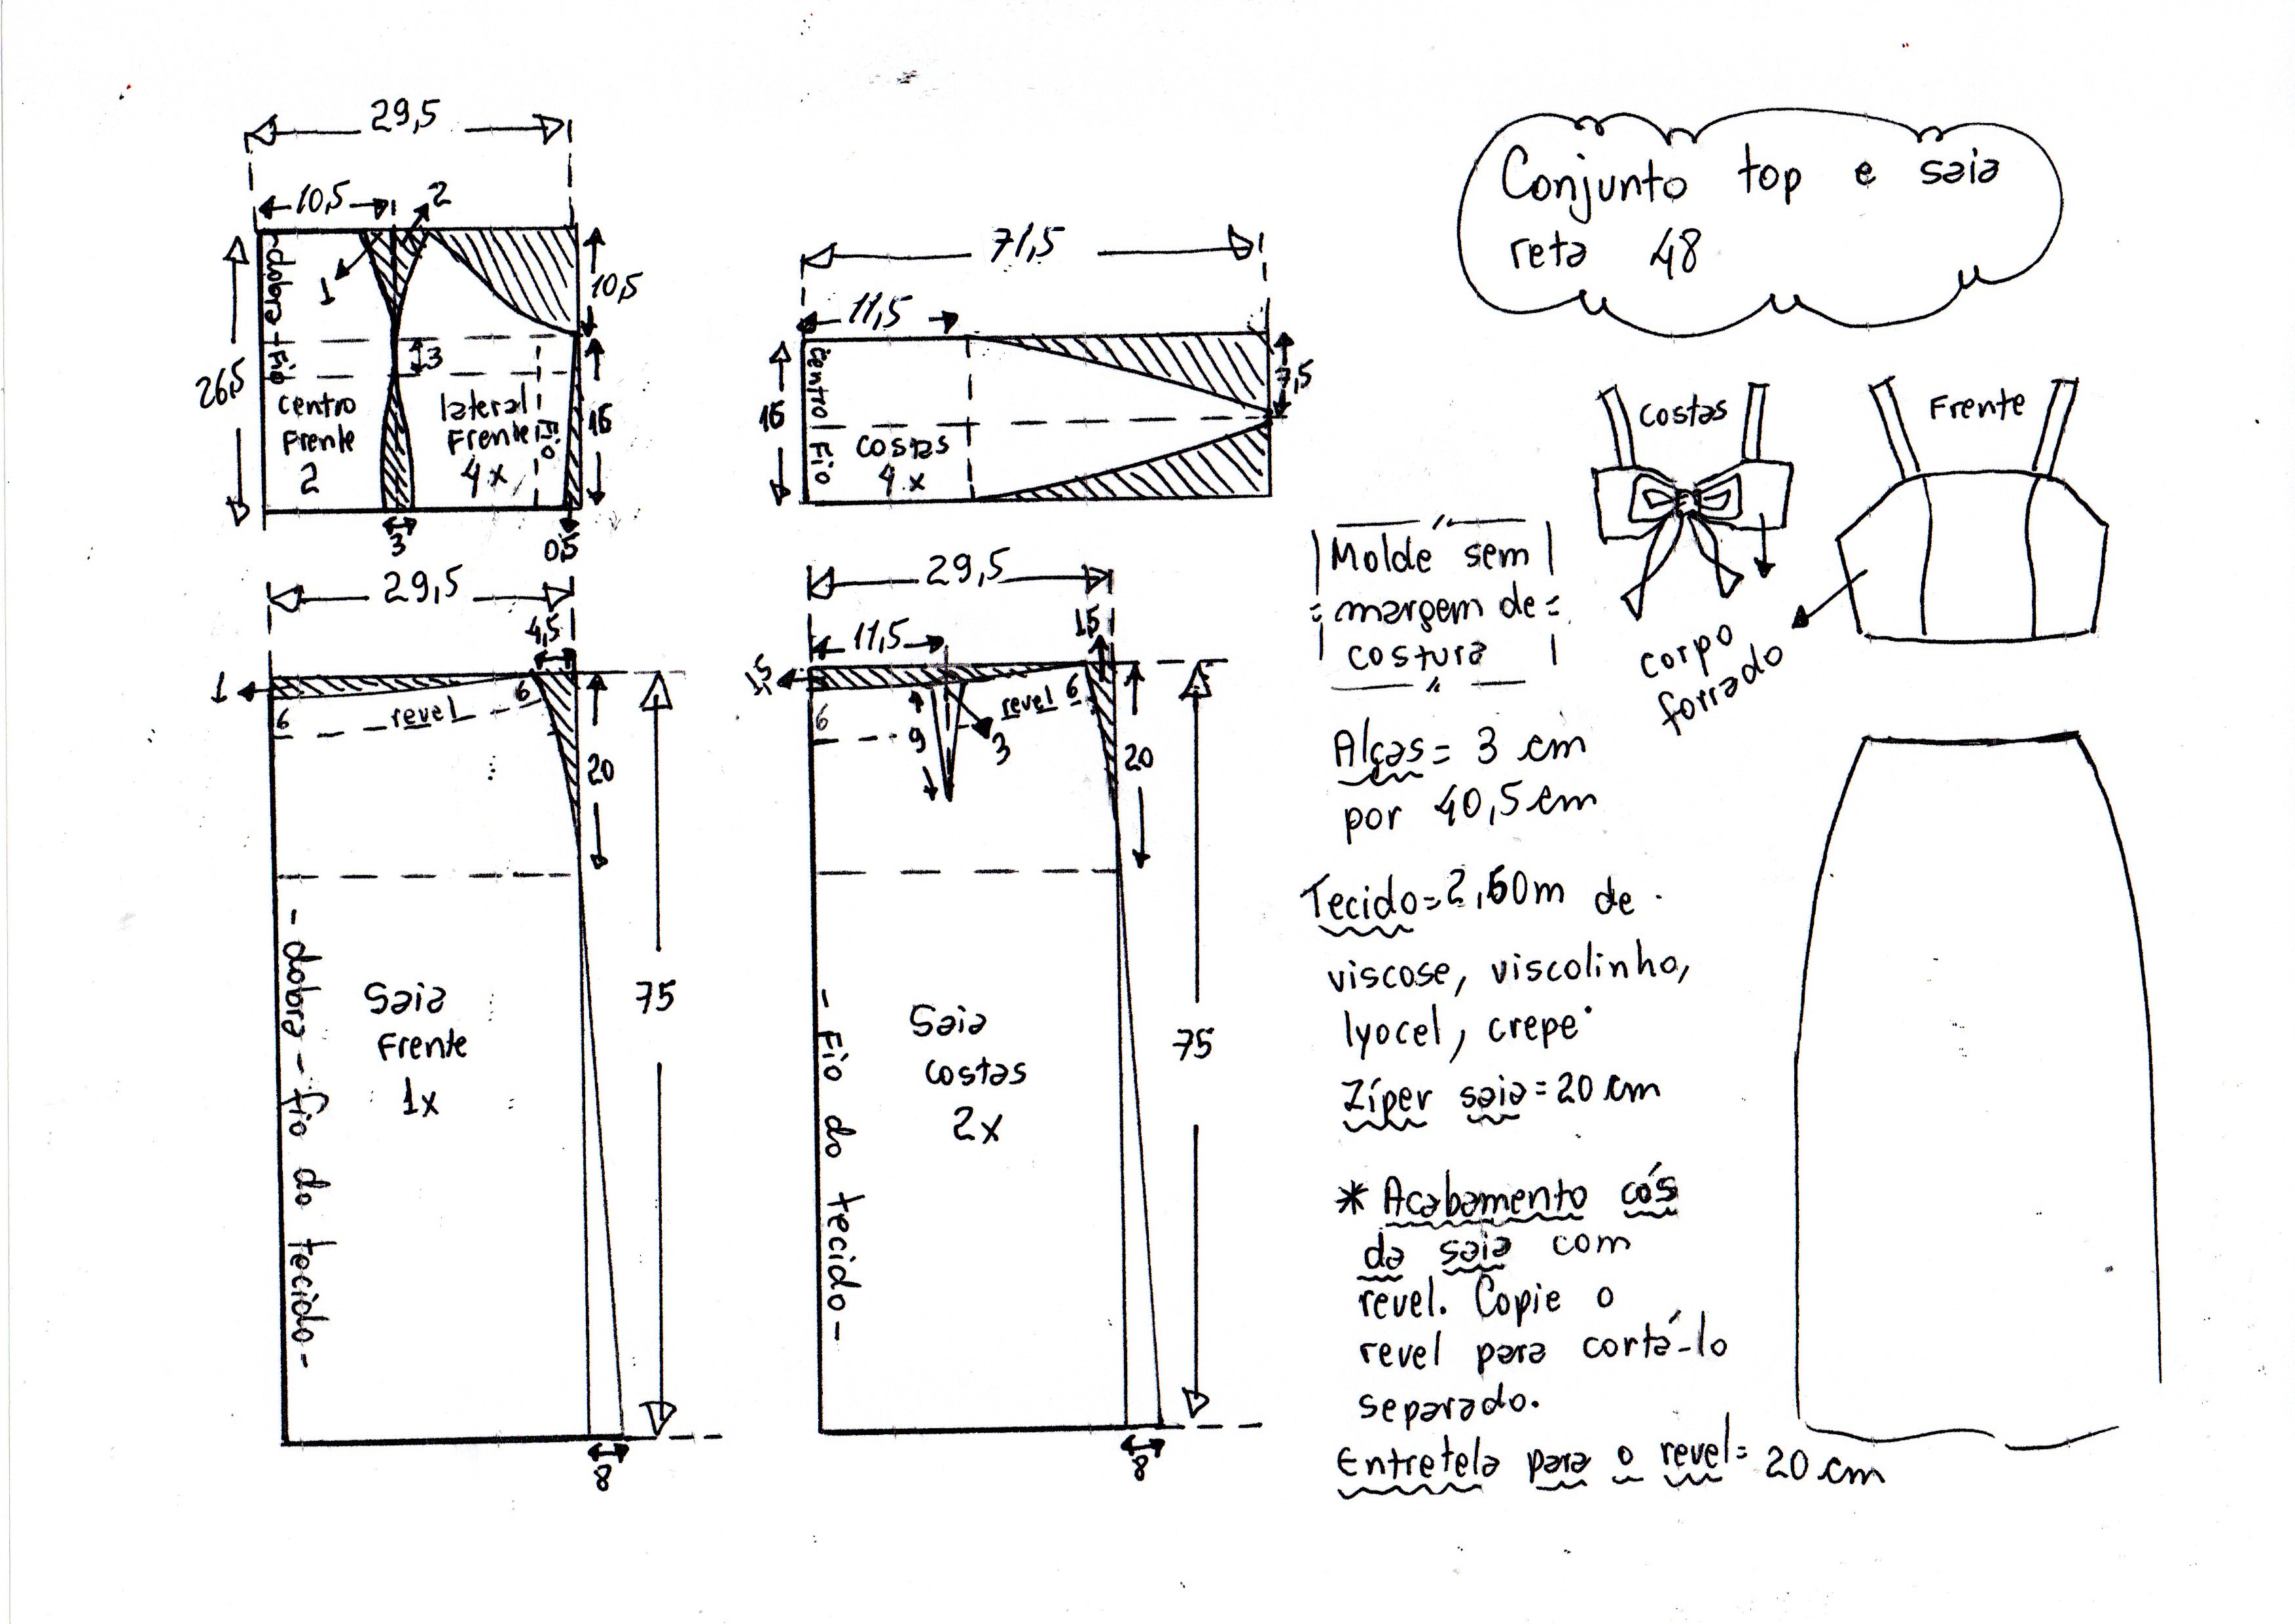 Conjunto top e saia
reta 48
29,5
10,5
2
1
10,5
dobra - fio
26,5
3
centro
Frente
2
lateral
Frente
4x
Fio
16
3
0,5
71,5
11,5
16
centro
Fio
costas
4x
7,5
Costas
Frente
corpo
forrado
Molde sem
margem de
costura
Alças = 3 cm
por 40,5 cm
Tecido = 2,60m de
viscose, viscolinho,
lyocel, crepe
Zíper saia = 20 cm
* Acabamento cós
da saia com
revel. Copie o
revel para cortá-lo
separado.
Entretela para o revel = 20 cm
29,5
4,5
1
6
revel
6
20
75
- dobra - fio do tecido -
Saia
Frente
1x
8
29,5
11,5
1,5
1,5
6
9
3
revel
6
20
75
- Fio do tecido -
Saia
costas
2x
8